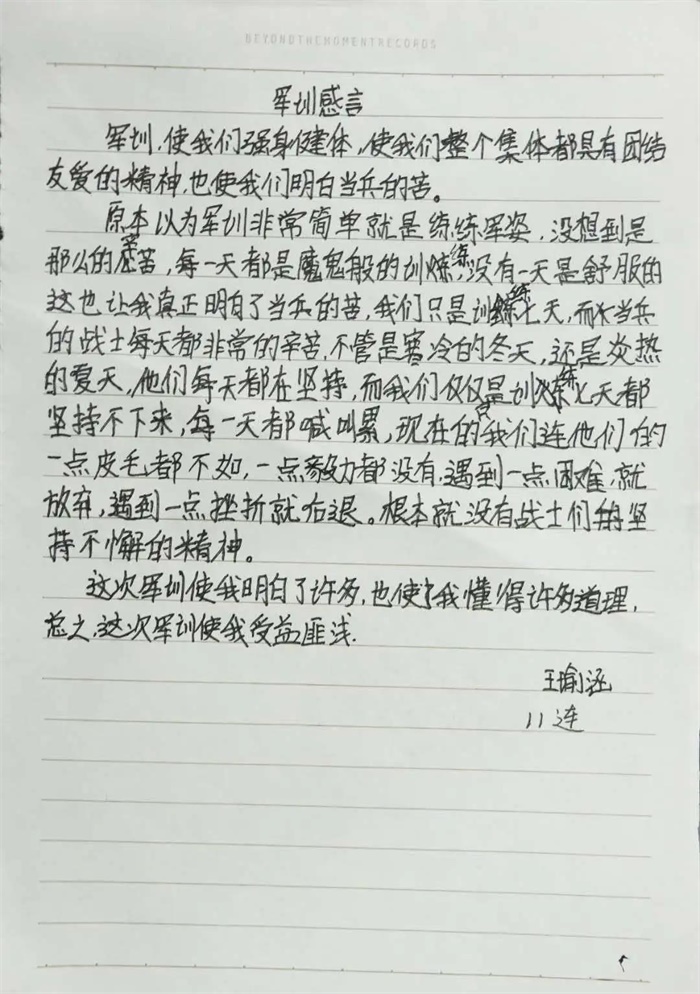 BEYONDTHEMOMENTRECORDS
军训感言
军训,使我们强身健体,使我们整个集体都具有团结
友爱的精神,也使我们明白当兵的苦。
原本以为军训非常简单就是练练军姿,没想到是
那么的辛苦,每一天都是魔鬼般的训练,没有一天是舒服的
这也让我真正明白了当兵的苦,我们只是训练七天,而不当兵
的战士每天都非常的辛苦,不管是寒冷的冬天,还是炎热
的夏天,他们每天都在坚持,而我们仅仅是训练七天都
坚持不下来,每一天都喊叫累,现在的我们连他们的
一点皮毛都不如,一点毅力都没有,遇到一点困难,就
放弃,遇到一点挫折就后退。根本就没有战士们的坚
持不懈的精神。
这次军训使我明白了许多,也使我懂得许多道理,
总之,这次军训使我受益匪浅.
王瑜涵
11连